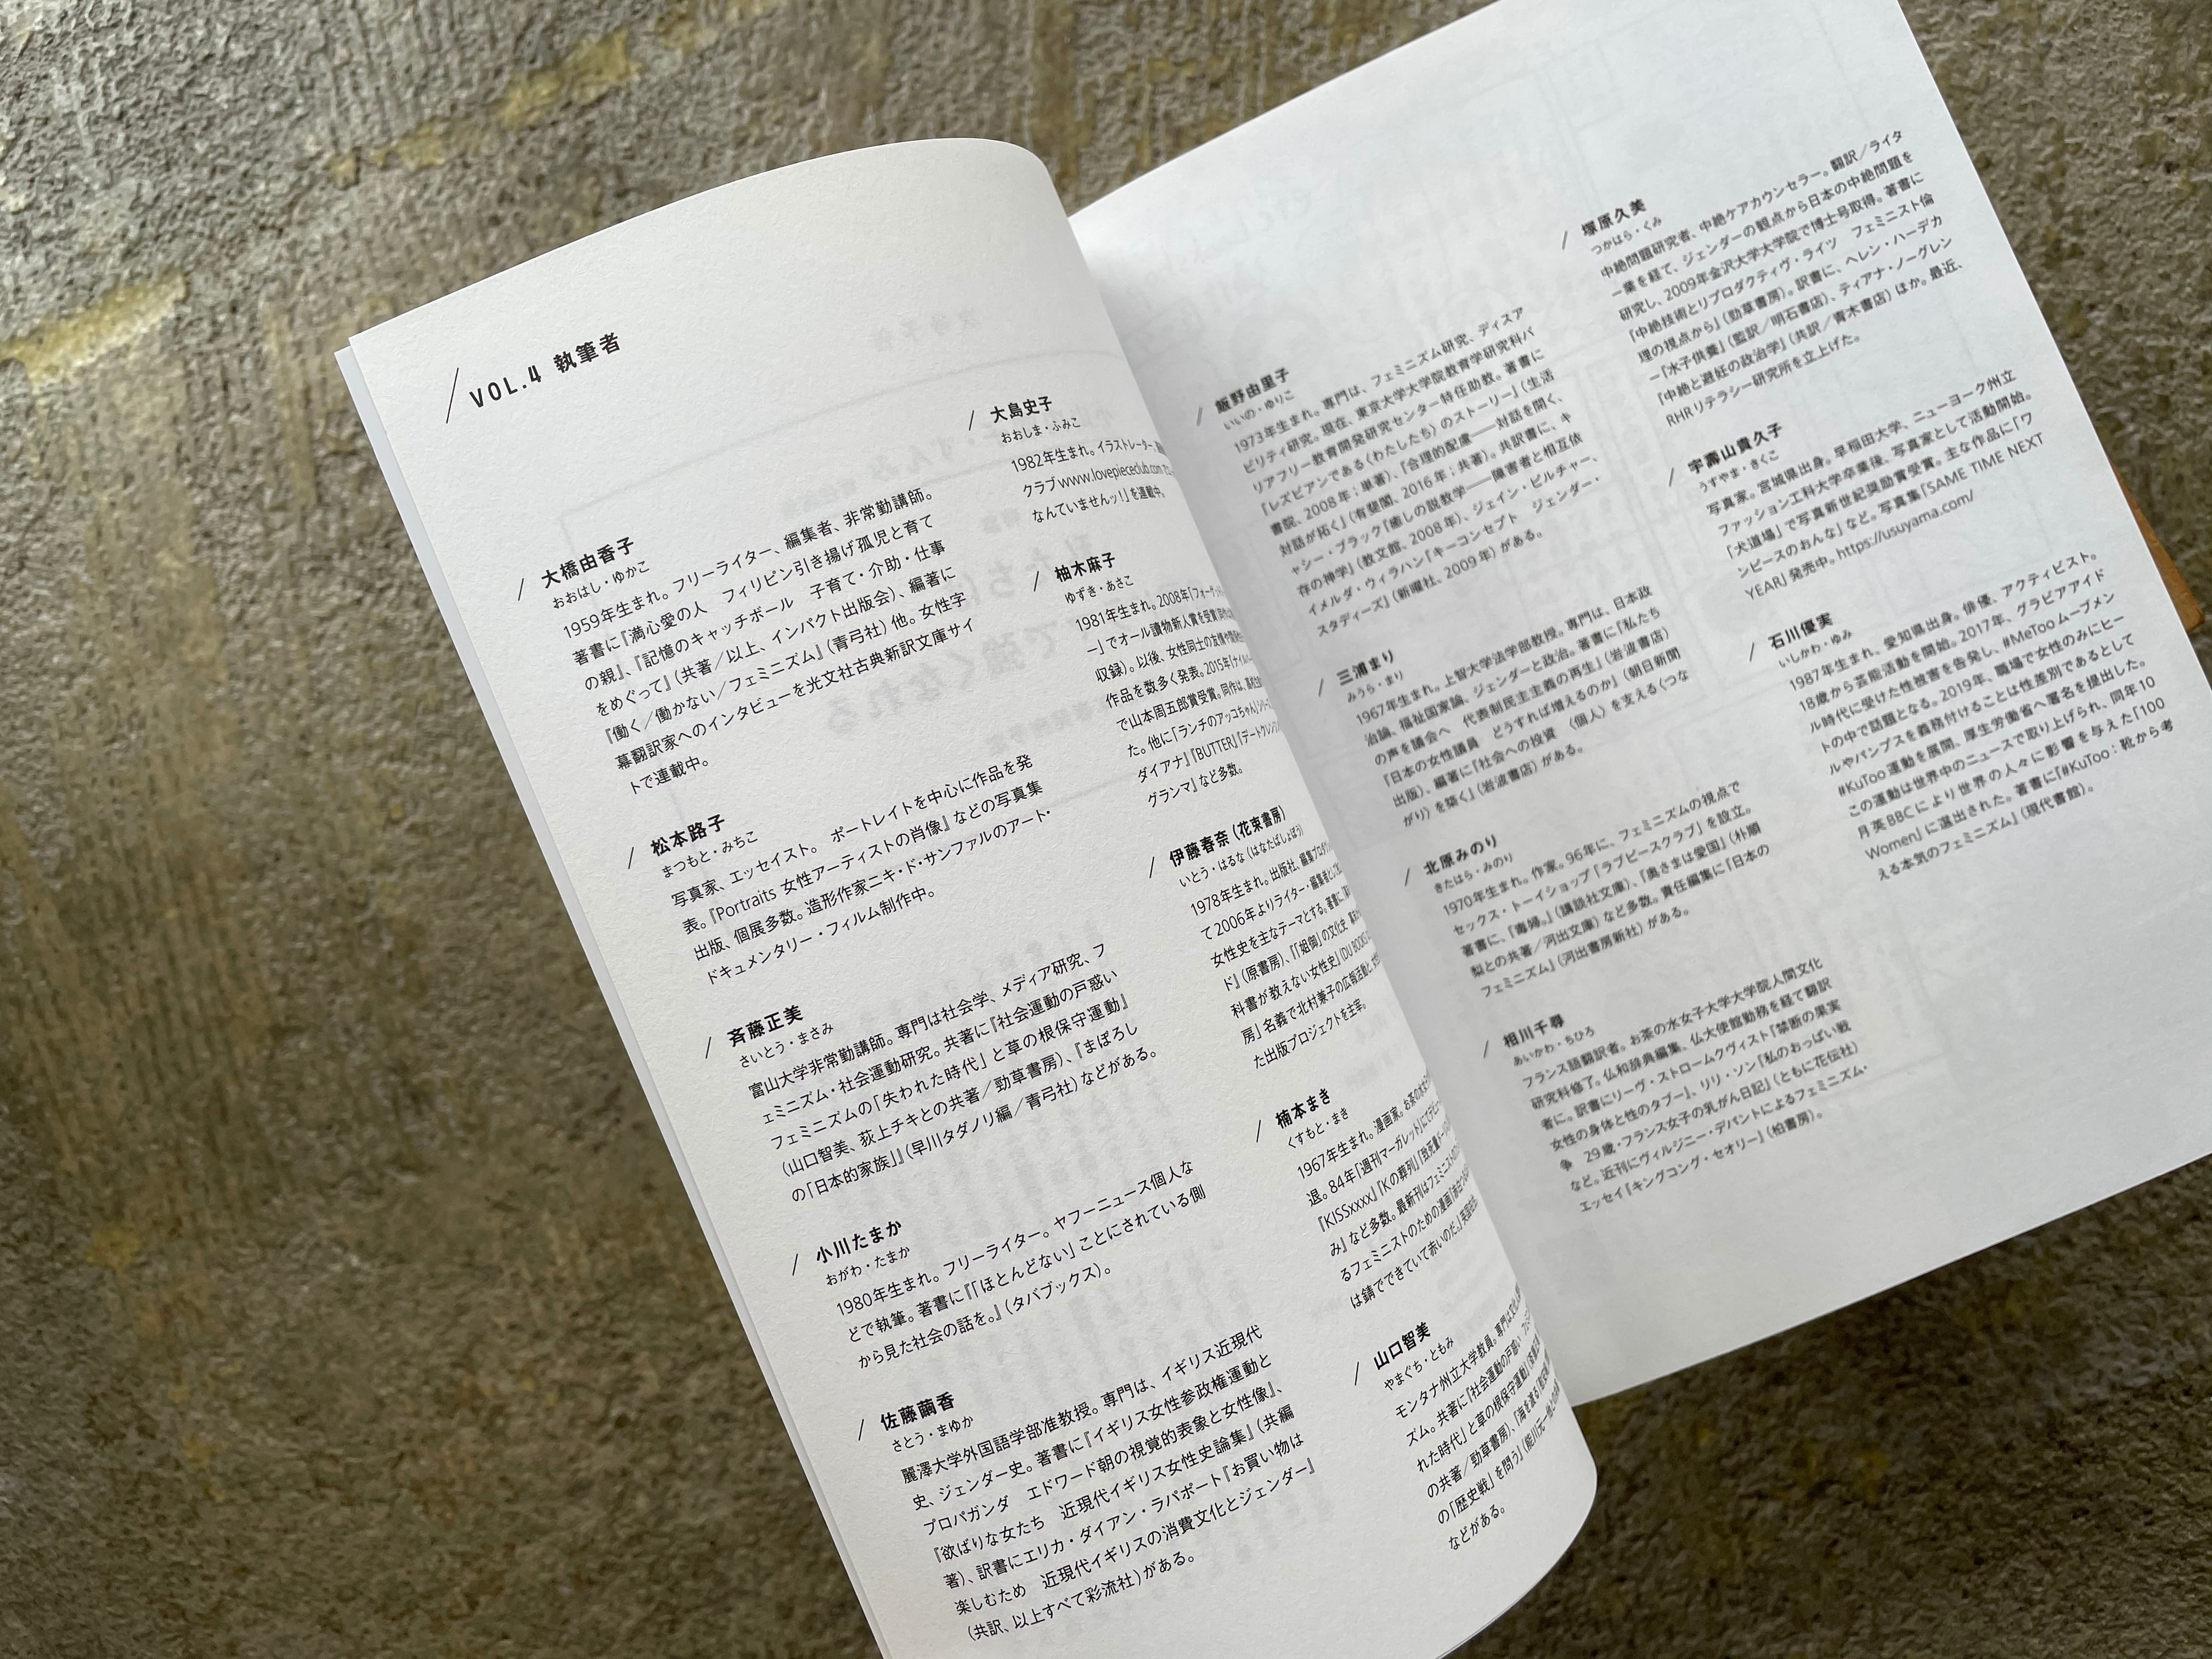 VOL.4 執筆者
大橋由香子
おおはし・ゆかこ
1959年生まれ。フリーライター、編集者、非常勤講師。
著書に『満心愛の人　フィリピン引き揚げ孤児と育て
の親』、『記憶のキャッチボール　子育て・介助・仕事
をめぐって』(共著／以上、インパクト出版会)、編著に
『働く／働かない／フェミニズム』(青弓社)他。女性字
幕翻訳家へのインタビューを光文社古典新訳文庫サイ
トで連載中。
松本路子
まつもと・みちこ
写真家、エッセイスト。　ポートレイトを中心に作品を発
表。『Portraits 女性アーティストの肖像』などの写真集
出版、個展多数。造形作家ニキ・ド・サンファルのアート・
ドキュメンタリー・フィルム制作中。
斉藤正美
さいとう・まさみ
富山大学非常勤講師。専門は社会学、メディア研究、フ
ェミニズム・社会運動研究。共著に『社会運動の戸惑い
フェミニズムの「失われた時代」と草の根保守運動』
(山口智美、荻上チキとの共著／勁草書房)、『まぼろし
の「日本的家族」』(早川タダノリ編／青弓社)などがある。
小川たまか
おがわ・たまか
1980年生まれ。フリーライター。ヤフーニュース個人な
どで執筆。著書に『「ほとんどない」ことにされている側
から見た社会の話を。』(タバブックス)。
佐藤繭香
さとう・まゆか
麗澤大学外国語学部准教授。専門は、イギリス近現代
史、ジェンダー史。著書に『イギリス女性参政権運動と
プロパガンダ　エドワード朝の視覚的表象と女性像』、
『欲ばりな女たち　近現代イギリス女性史論集』(共編
著)、訳書にエリカ・ダイアン・ラパポート『お買い物は
楽しむため　近現代イギリスの消費文化とジェンダー』
(共訳、以上すべて彩流社)がある。
大島史子
おおしま・ふみこ
1982年生まれ。イラストレーター、
クラブwww.lovepiececlub.com
なんていませんッ!」を連載中。
柚木麻子
ゆずき・あさこ
1981年生まれ。2008年「フォーゲット
ー」でオール讀物新人賞を受賞
収録)。以後、女性同士の友情や
作品を数多く発表。2015年『ナイル
で山本周五郎賞受賞。同作は、高校生
た。他に「ランチのアッコちゃん」シリーズ
ダイアナ』『BUTTER』『デートクレンジング
グランマ』など多数。
伊藤春奈(花束書房)
いとう・はるな(はなたばしょぼう)
1978年生まれ。出版社、編集プロダク
て2006年よりライター・編集者として
女性史を主なテーマとする。著書に
ド』(原書房)、『「姐御」の文化史
科書が教えない女性史』(DU BOOKS
房」名義で北村兼子の広報活動と、
た出版プロジェクトを主宰。
楠本まき
くすもと・まき
1967年生まれ。漫画家。お茶の水
退。84年「週刊マーガレット」にてデビュー
『KISSxxxx』『Kの葬列』『致死量ドーリス
み』など多数。最新刊はフェミニストの
るフェミニストのための漫画『赤白つるばみ
は錆でできていて赤いのだ』。
山口智美
やまぐち・ともみ
モンタナ州立大学教員。専門は文化人類
ズム。共著に『社会運動の戸惑い　フェミニ
れた時代」と草の根保守運動』
の共著／勁草書房)、『海を渡る「慰安
の「歴史戦」を問う』(能川元一他との共
などがある。
飯野由里子
いいの・ゆりこ
1973年生まれ。専門は、フェミニズム研究、ディスア
ビリティ研究。現在、東京大学大学院教育学研究科バ
リアフリー教育開発研究センター特任助教。著書に
『レズビアンである〈わたしたち〉のストーリー』(生活
書院、2008年；単著)、『合理的配慮――対話を開く、
対話が拓く』(有斐閣、2016年；共著)。共訳書に、キ
ャシー・ブラック『癒しの説教学――障害者と相互依
存の神学』(教文館、2008年)、ジェイン・ピルチャー、
イメルダ・ウィラハン『キーコンセプト　ジェンダー・
スタディーズ』(新曜社、2009年)がある。
三浦まり
みうら・まり
1967年生まれ。上智大学法学部教授。専門は、日本政
治論、福祉国家論、ジェンダーと政治。著書に『私たち
の声を議会へ　代表制民主主義の再生』(岩波書店)
『日本の女性議員　どうすれば増えるのか』(朝日新聞
出版)、編著に『社会への投資　〈個人〉を支える〈つな
がり〉を築く』(岩波書店)がある。
北原みのり
きたはら・みのり
1970年生まれ。作家。96年に、フェミニズムの視点で
セックス・トーイショップ「ラブピースクラブ」を設立。
著書に、『毒婦。』(講談社文庫)、『奥さまは愛国』(朴順
梨との共著／河出文庫)など多数。責任編集に『日本の
フェミニズム』(河出書房新社)がある。
相川千尋
あいかわ・ちひろ
フランス語翻訳者。お茶の水女子大学大学院人間文化
研究科修了。仏和辞典編集、仏大使館勤務を経て翻訳
者に。訳書にリーヴ・ストロームクヴィスト『禁断の果実
女性の身体と性のタブー』、リリ・ソン『私のおっぱい戦
争　29歳・フランス女子の乳がん日記』(ともに花伝社)
など。近刊にヴィルジニー・デパントによるフェミニズム・
エッセイ『キングコング・セオリー』(柏書房)。
塚原久美
つかはら・くみ
中絶問題研究者、中絶ケアカウンセラー。翻訳／ライタ
ー業を経て、ジェンダーの観点から日本の中絶問題を
研究し、2009年金沢大学大学院で博士号取得。著書に
『中絶技術とリプロダクティヴ・ライツ　フェミニスト倫
理の視点から』(勁草書房)。訳書に、ヘレン・ハーデカ
ー『水子供養』(監訳／明石書店)、ティアナ・ノーグレン
『中絶と避妊の政治学』(共訳／青木書店)ほか。最近、
RHRリテラシー研究所を立上げた。
宇壽山貴久子
うすやま・きくこ
写真家。宮城県出身。早稲田大学、ニューヨーク州立
ファッション工科大学卒業後、写真家として活動開始。
「犬道場」で写真新世紀奨励賞受賞。主な作品に「ワ
ンピースのおんな」など。写真集『SAME TIME NEXT
YEAR』発売中。https://usuyama.com/
石川優実
いしかわ・ゆみ
1987年生まれ。愛知県出身。俳優、アクティビスト。
18歳から芸能活動を開始。2017年、グラビアアイド
ル時代に受けた性被害を告発し、#MeTooムーブメン
トの中で話題となる。2019年、職場で女性のみにヒー
ルやパンプスを義務付けることは性差別であるとして
#KuToo運動を展開、厚生労働省へ署名を提出した。
この運動は世界中のニュースで取り上げられ、同年10
月英BBCにより世界の人々に影響を与えた「100
Women」に選出された。著書に『#KuToo：靴から考
える本気のフェミニズム』(現代書館)。